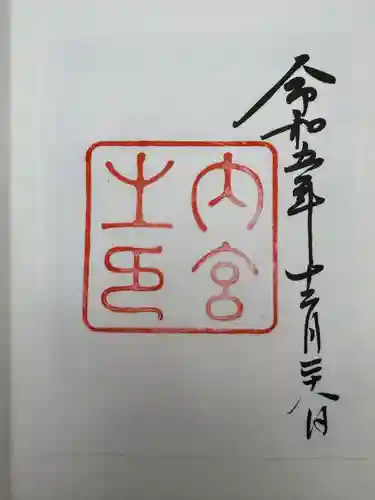 令和五年十二月二十八日
内宮
之印